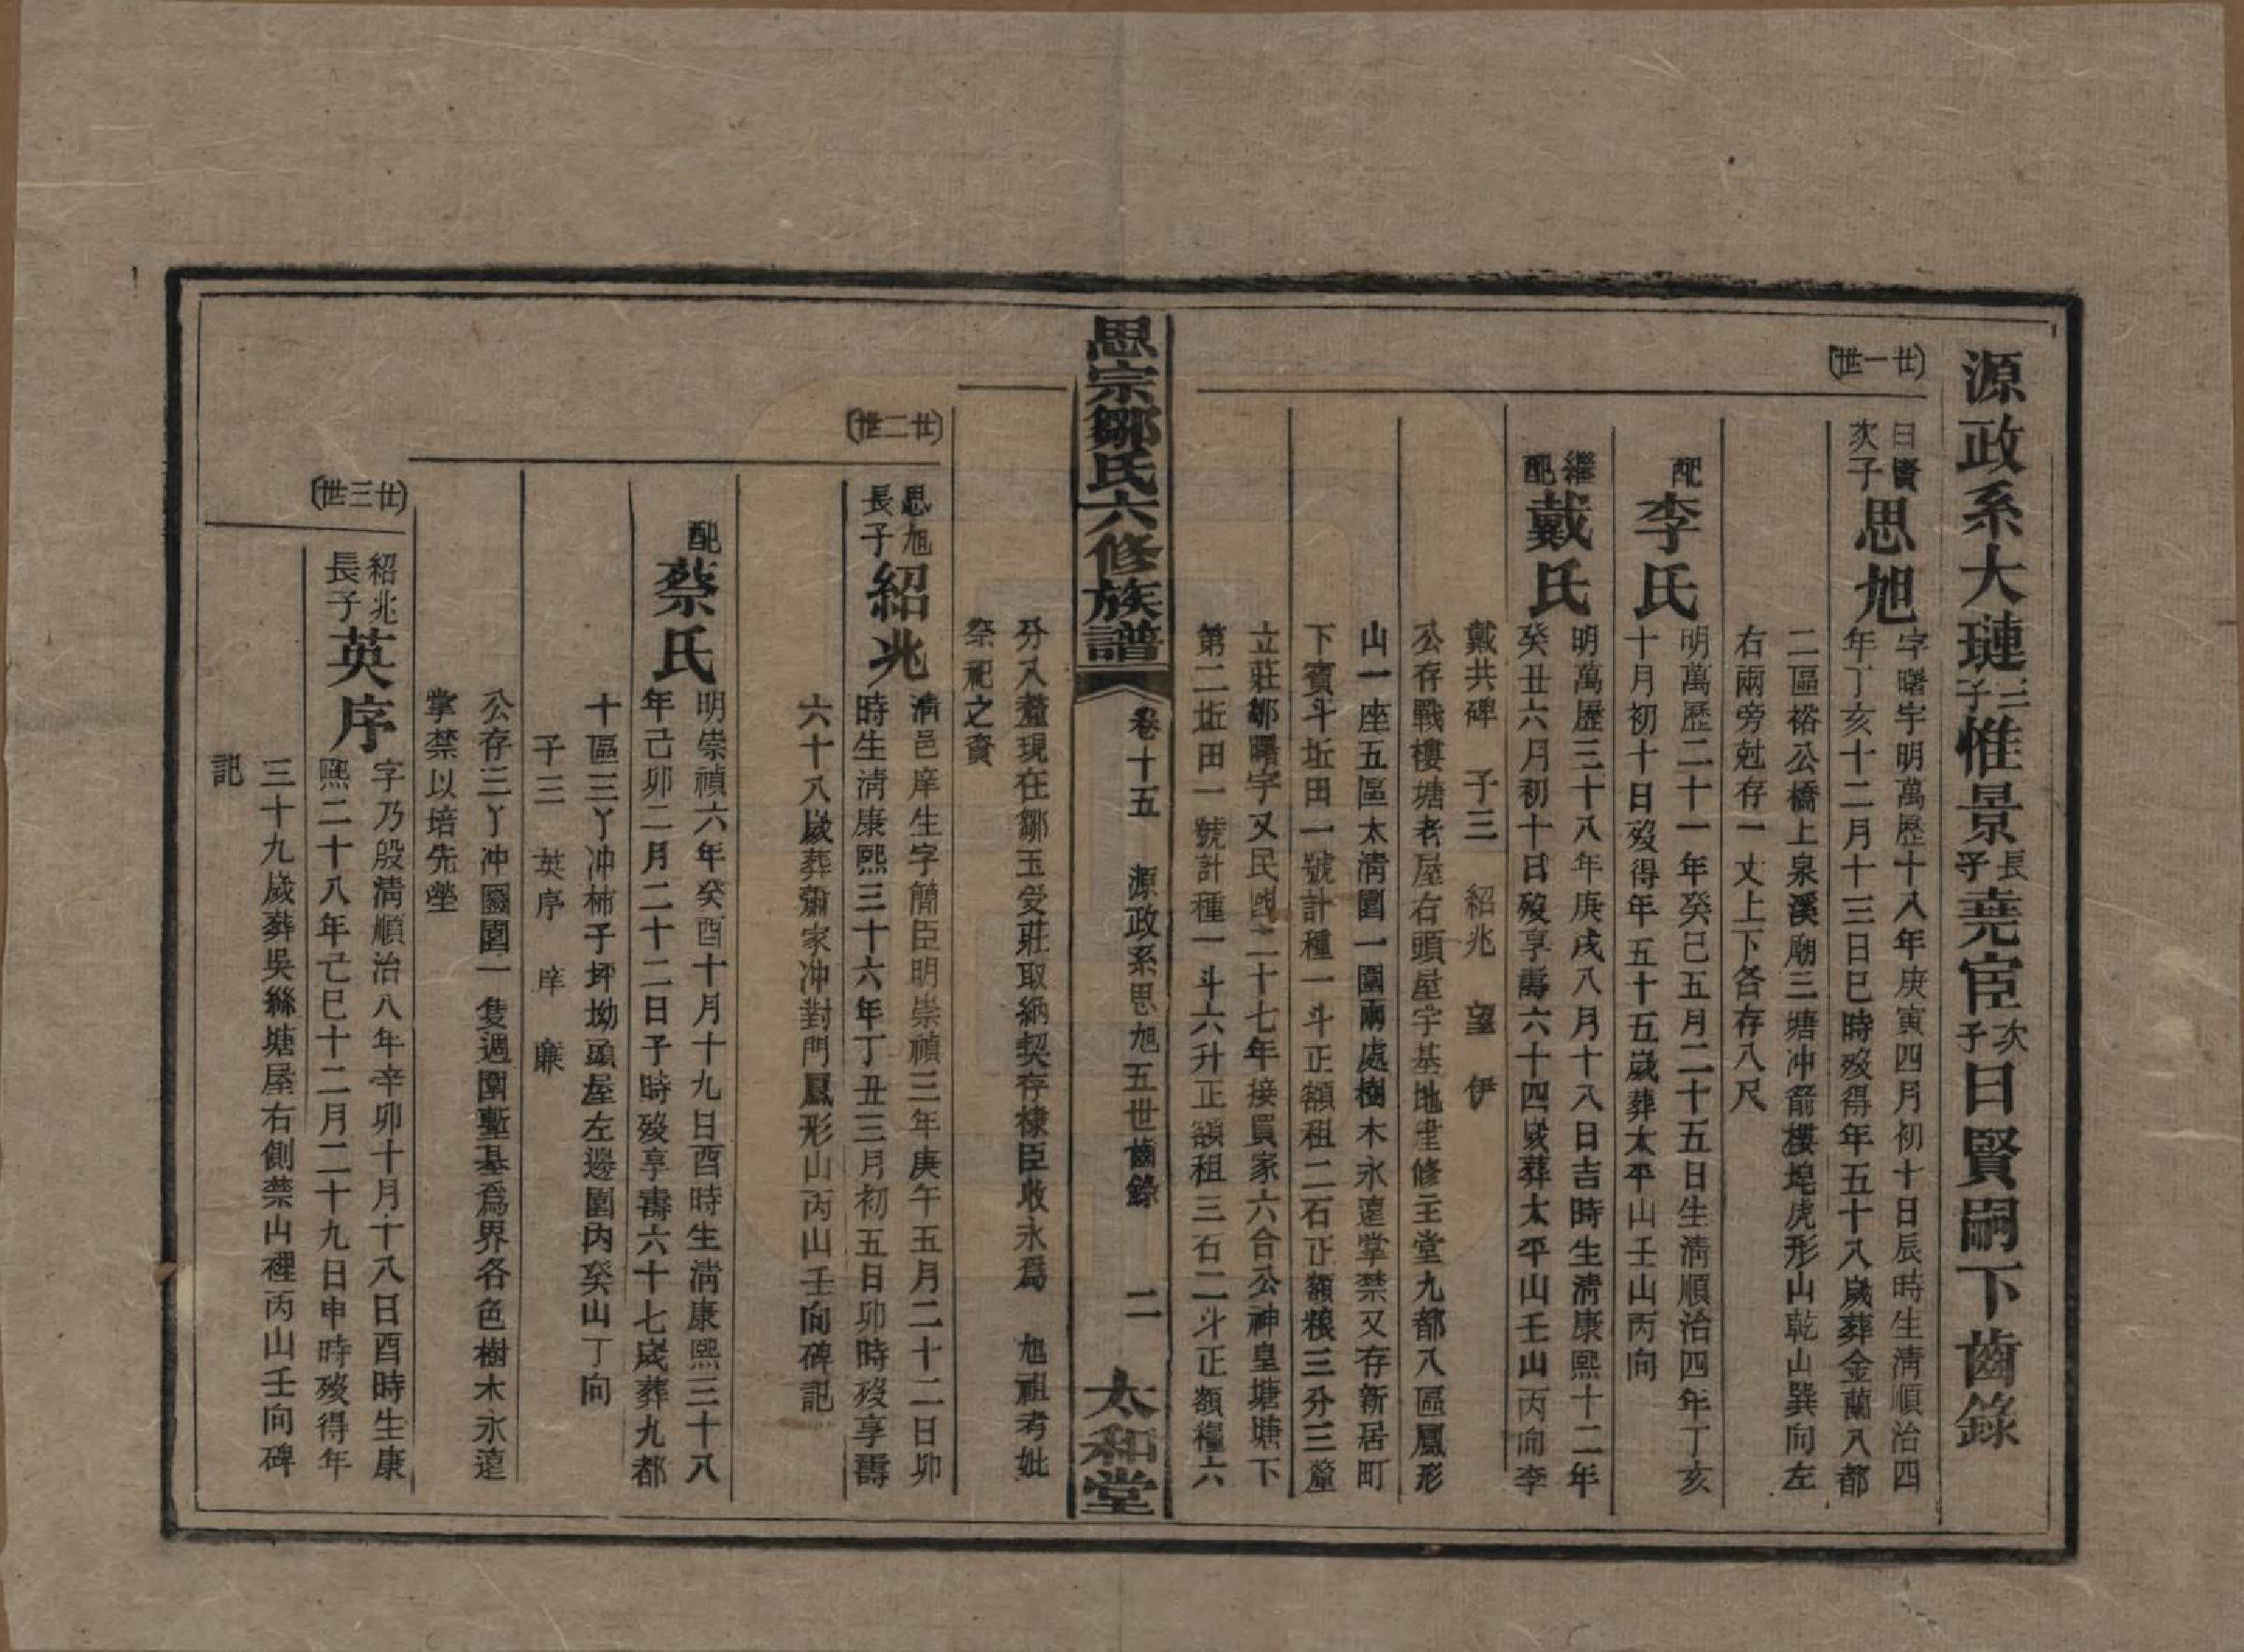 源政系大璉三子惟景長子堯宦次子日賢嗣下齒錄
廿一世
日賢次子思旭
字曙宇明萬歷十八年庚寅四月初十日辰時生淸順治四
年丁亥十二月十三日巳時歿得年五十八歲葬金蘭八都
二區裕公橋上泉溪廟三塘冲箭樓堍虎形山乾山巽向左
右兩旁尅存一丈上下各存八尺
配李氏
明萬歷二十一年癸巳五月二十五日生淸順治四年丁亥
十月初十日歿得年五十五歲葬太平山壬山丙向
繼配戴氏
明萬歷三十八年庚戌八月十八日吉時生淸康熙十二年
癸丑六月初十日歿享壽六十四歲葬太平山壬山丙向李
戴共碑 子三 紹兆 望 伊
公存戰樓塘老屋右頭屋宇基地建修主堂九都八區鳳形
山一座五區太淸圍一圍兩處樹木永遠掌禁又存新居町
下賓斗坵田一號計種一斗正額租二石正額粮三分三釐
立莊鄒曙宇又民國二十七年接買家六合公神皇塘塘下
第二坵田一號計種一斗六升正額租三石二斗正額糧六
思宗鄒氏六修族譜 卷十五 源政系思旭五世齒錄 二 太和堂
分入釐現在鄒玉受莊取納契存棣臣收永爲 旭祖考妣
祭祀之資
廿二世
思旭長子紹兆
淸邑庠生字簡臣明崇禎三年庚午五月二十二日卯
時生淸康熙三十六年丁丑三月初五日卯時歿享壽
六十八歲葬蕭家冲對門鳳形山丙山壬向碑記
配蔡氏
明崇禎六年癸酉十月十九日酉時生淸康熙三十八
年己卯二月二十二日子時歿享壽六十七歲葬九都
十區三丫冲柿子坪坳頭屋左邊圍內癸山丁向
子三 英序 庠 廉
公存三丫冲圍一隻週圍塹基爲界各色樹木永遠
掌禁以培先塋
廿三世
紹兆長子英序
字乃殷淸順治八年辛卯十月十八日酉時生康
熙二十八年己巳十二月二十九日申時歿得年
三十九歲葬吳絲塘屋右側禁山裡丙山壬向碑
記